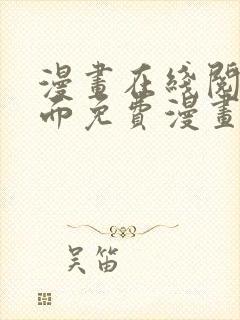 漫畫在綫閱
面免費漫畫
吴笛